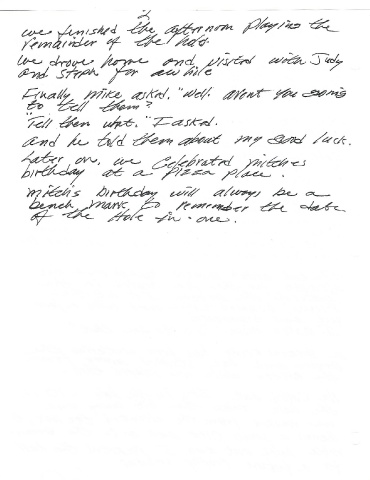 2
we finished the afternoon playing the
remainder of the
we drove home and visited with Judy
and Steph for awhile
Finally Mike asked, "Well. arent you going
to tell them?
"Tell them what." I asked.
and he told them about my good luck.
Later on, we celebrated mitches
birthday at a pizza place.
mitch's birthday will always be a
bench mark to remember the date
of the Hole-in-one.